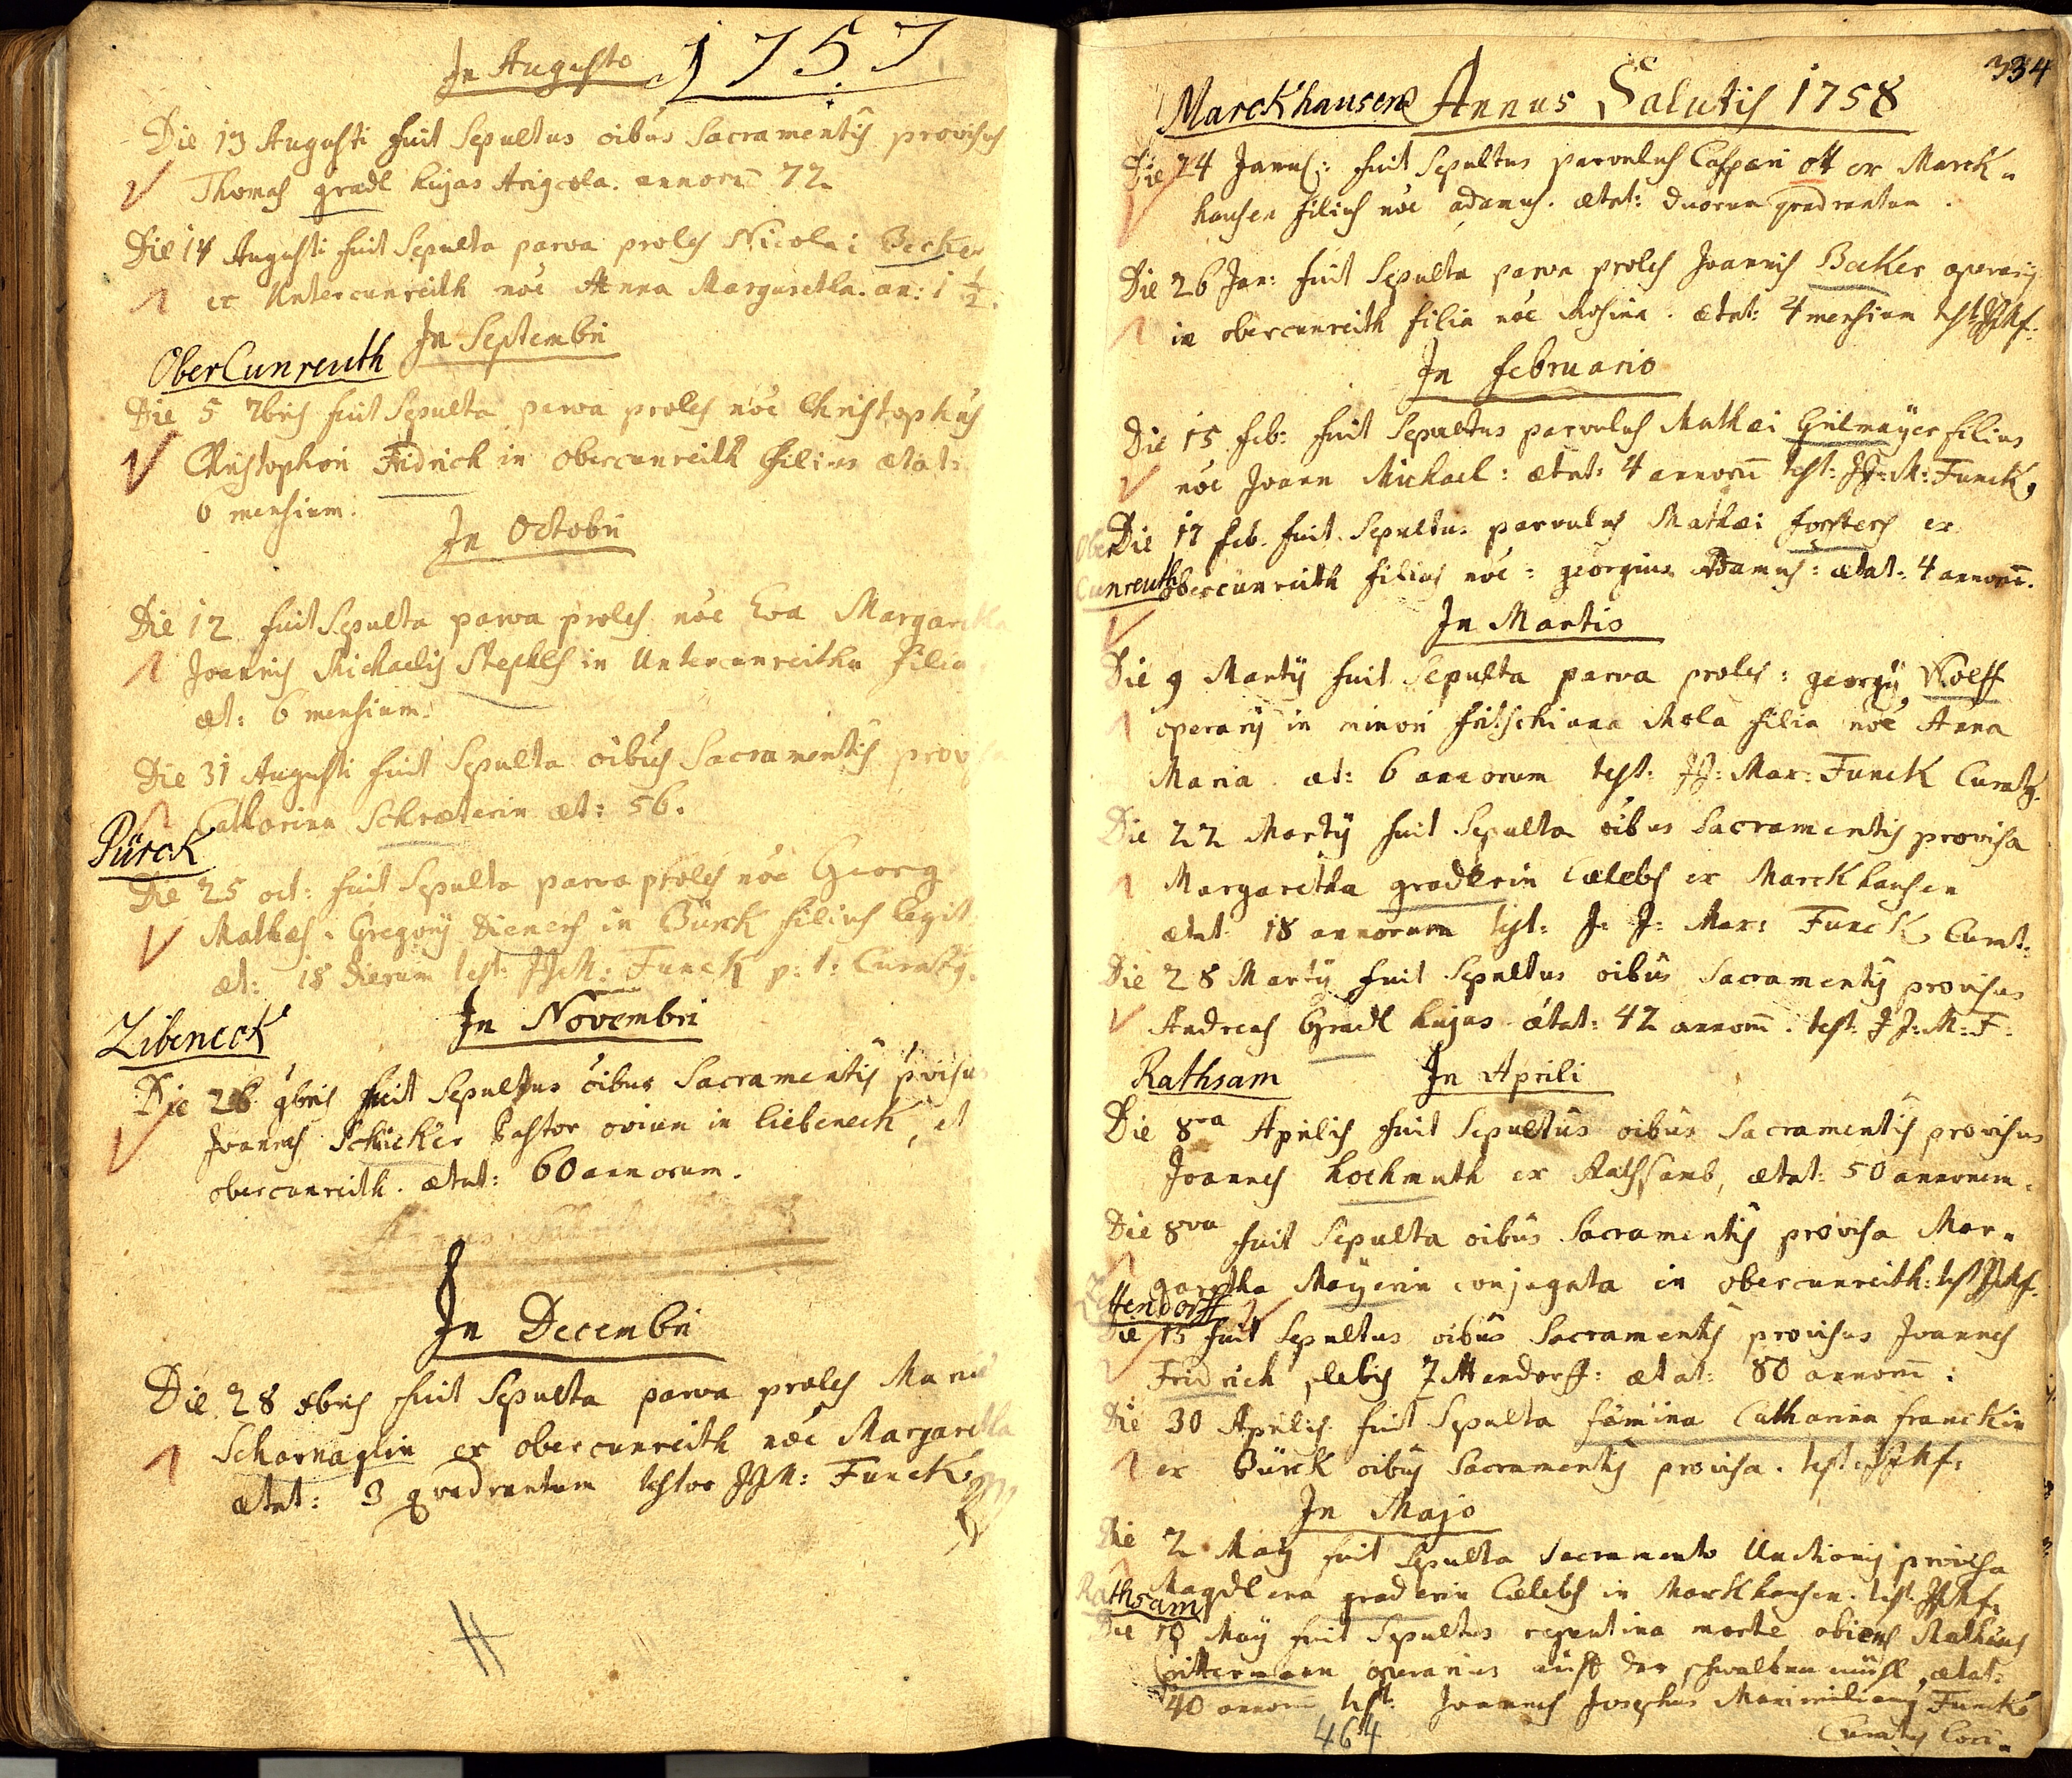 In Augusto 1757
Die 13 Augusti fuit Sepultus oibus Sacramentis provisus
Thomas gradl hujas Agricola. annorū 72.
Die 14 Augusti fuit Sepulta parva proles Nicolai Becker
ex Untercunreith nōe Anna Margaretha. an: 1 ½.
In Septembri
OberCunreuth
Die 5 7bris fuit Sepulta parva proles nōe Christophus
Christophori Fridrich in obercunreith filius ætat:
6 mensium.
In Octobri
Die 12 fuit Sepulta parva proles nōe Eva Margaretha
Joannis Michaelis Stephls in Untercunreith filia
æt: 6 mensium.
Die 31 Augusti fuit Sepulta oibus Sacramentis provisa
Catharina Schræterin æt: 56.
Pürck
Die 25 oct: fuit Sepulta parva proles nōe Georg
Mathæs. Gregorij Dieners in Bürck filius legit.
æt: 18 dierum test: JJM: Funck p: t: Curatg.
In Novembri
Libeneck
Die 26 9bris fuit Sepultus oibus Sacramentis pvisus
Joannes Schicker Pastor ovium in liebeneck, et
obercunreith. ætat: 60 annorum.
In Decembri
Die 28 xbris fuit Sepulta parva proles Mariæ
Scharnaglin ex obercunreith nōe Margaretha
ætat: 3 quadrantum testor JJM: Funck
334
Marckhausen Annus Salutis 1758
Die 24 Janu: fuit Sepultus parvulus Caspari ott ex Marck=
hausen filius nōe adamus. ætat: duorum quadrantum.
Die 26 Jan: fuit Sepulta parva proles Joannis Becker operarij
in obercunreith filia nōe Rosina. ætat: 4 mensium test JJMf:
In februario
Die 15 feb: fuit Sepultus parvulus Mathæi Grilmaÿer filius
nōe Joann Michael: ætat: 4 annorū test: JJ: M: Funck,
Ober
Die 17 feb. fuit Sepultus parvulus Mathæi forsters ex
Cunreuth
obercunreith filius nōe: georgius Adamus: ætat: 4 annorū.
In Martio
Die 9 Martij fuit Sepulta parva proles: georgij Wolff
operarij in minori fritschiana Mola filia nōe Anna
Maria. æt: 6 annorum test: JJ: Mar: Funck Curatg.
Die 22 Martij fuit Sepulta oibus Sacramentis provisa
Margaretha gradlerin Cælebs ex Marckhausen
ætat 18 annorum test: J: J: Mar: Funck Curat:
Die 28 Martij fuit Sepultus oibus Sacramentis provisus
Andreas Gradl hujas ætat: 42 annorū. test: JJ: M: F:
Rathsam In Aprili
Die 8va Aprilis fuit Sepultus oibus Sacramentis provisus
Joannes hochmuth ex Rathsamb, ætat: 50 annorum.
Die 8va fuit Sepulta oibus Sacramentis provisa Mar=
garetha Maÿerin conjugata in obercunreith: test JJMf:
Zettendorff
Die 15 fuit Sepultus oibus Sacramentis provisus Joannes
Fridrich plebis Zettendorff: ætat: 80 annorū:
Die 30 Aprilis fuit Sepulta fœmina Catharina franckin
ex Bürck oibus Sacramentis provisa. test JJMf:
In Majo
Die 2 Maij fuit Sepulta Sacramento Unctionis provisa
Magdlena graderin Cælebs in Marckhausen. test. JJMf:
Rathsam
Die 10 Maij fuit Sepultus repentina morte obiens Mathæus
operarius auff der schwalben mühl, ætat:
40 annorū test: Joannes Josephus Maximilianus Funck
Curatus loci.
464